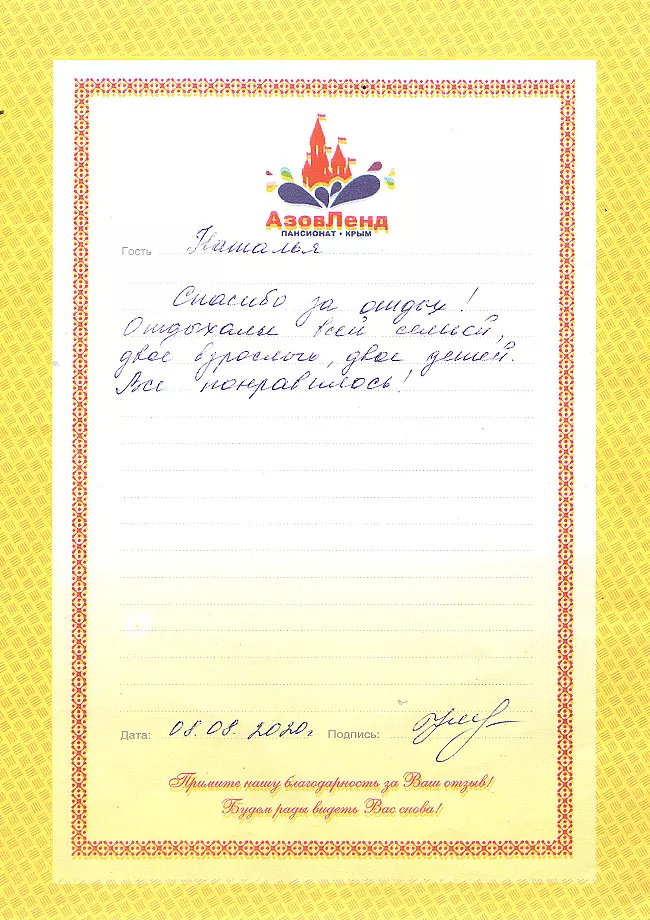 АзовЛенд
ПАНСИОНАТ • КРЫМ
Гость Наталья
Спасибо за отдых!
Отдыхали всей семьей,
двое взрослых, двое детей.
Все понравилось!
Дата: 08.08.2020г Подпись:
Примите нашу благодарность за Ваш отзыв!
Будем рады видеть Вас снова!